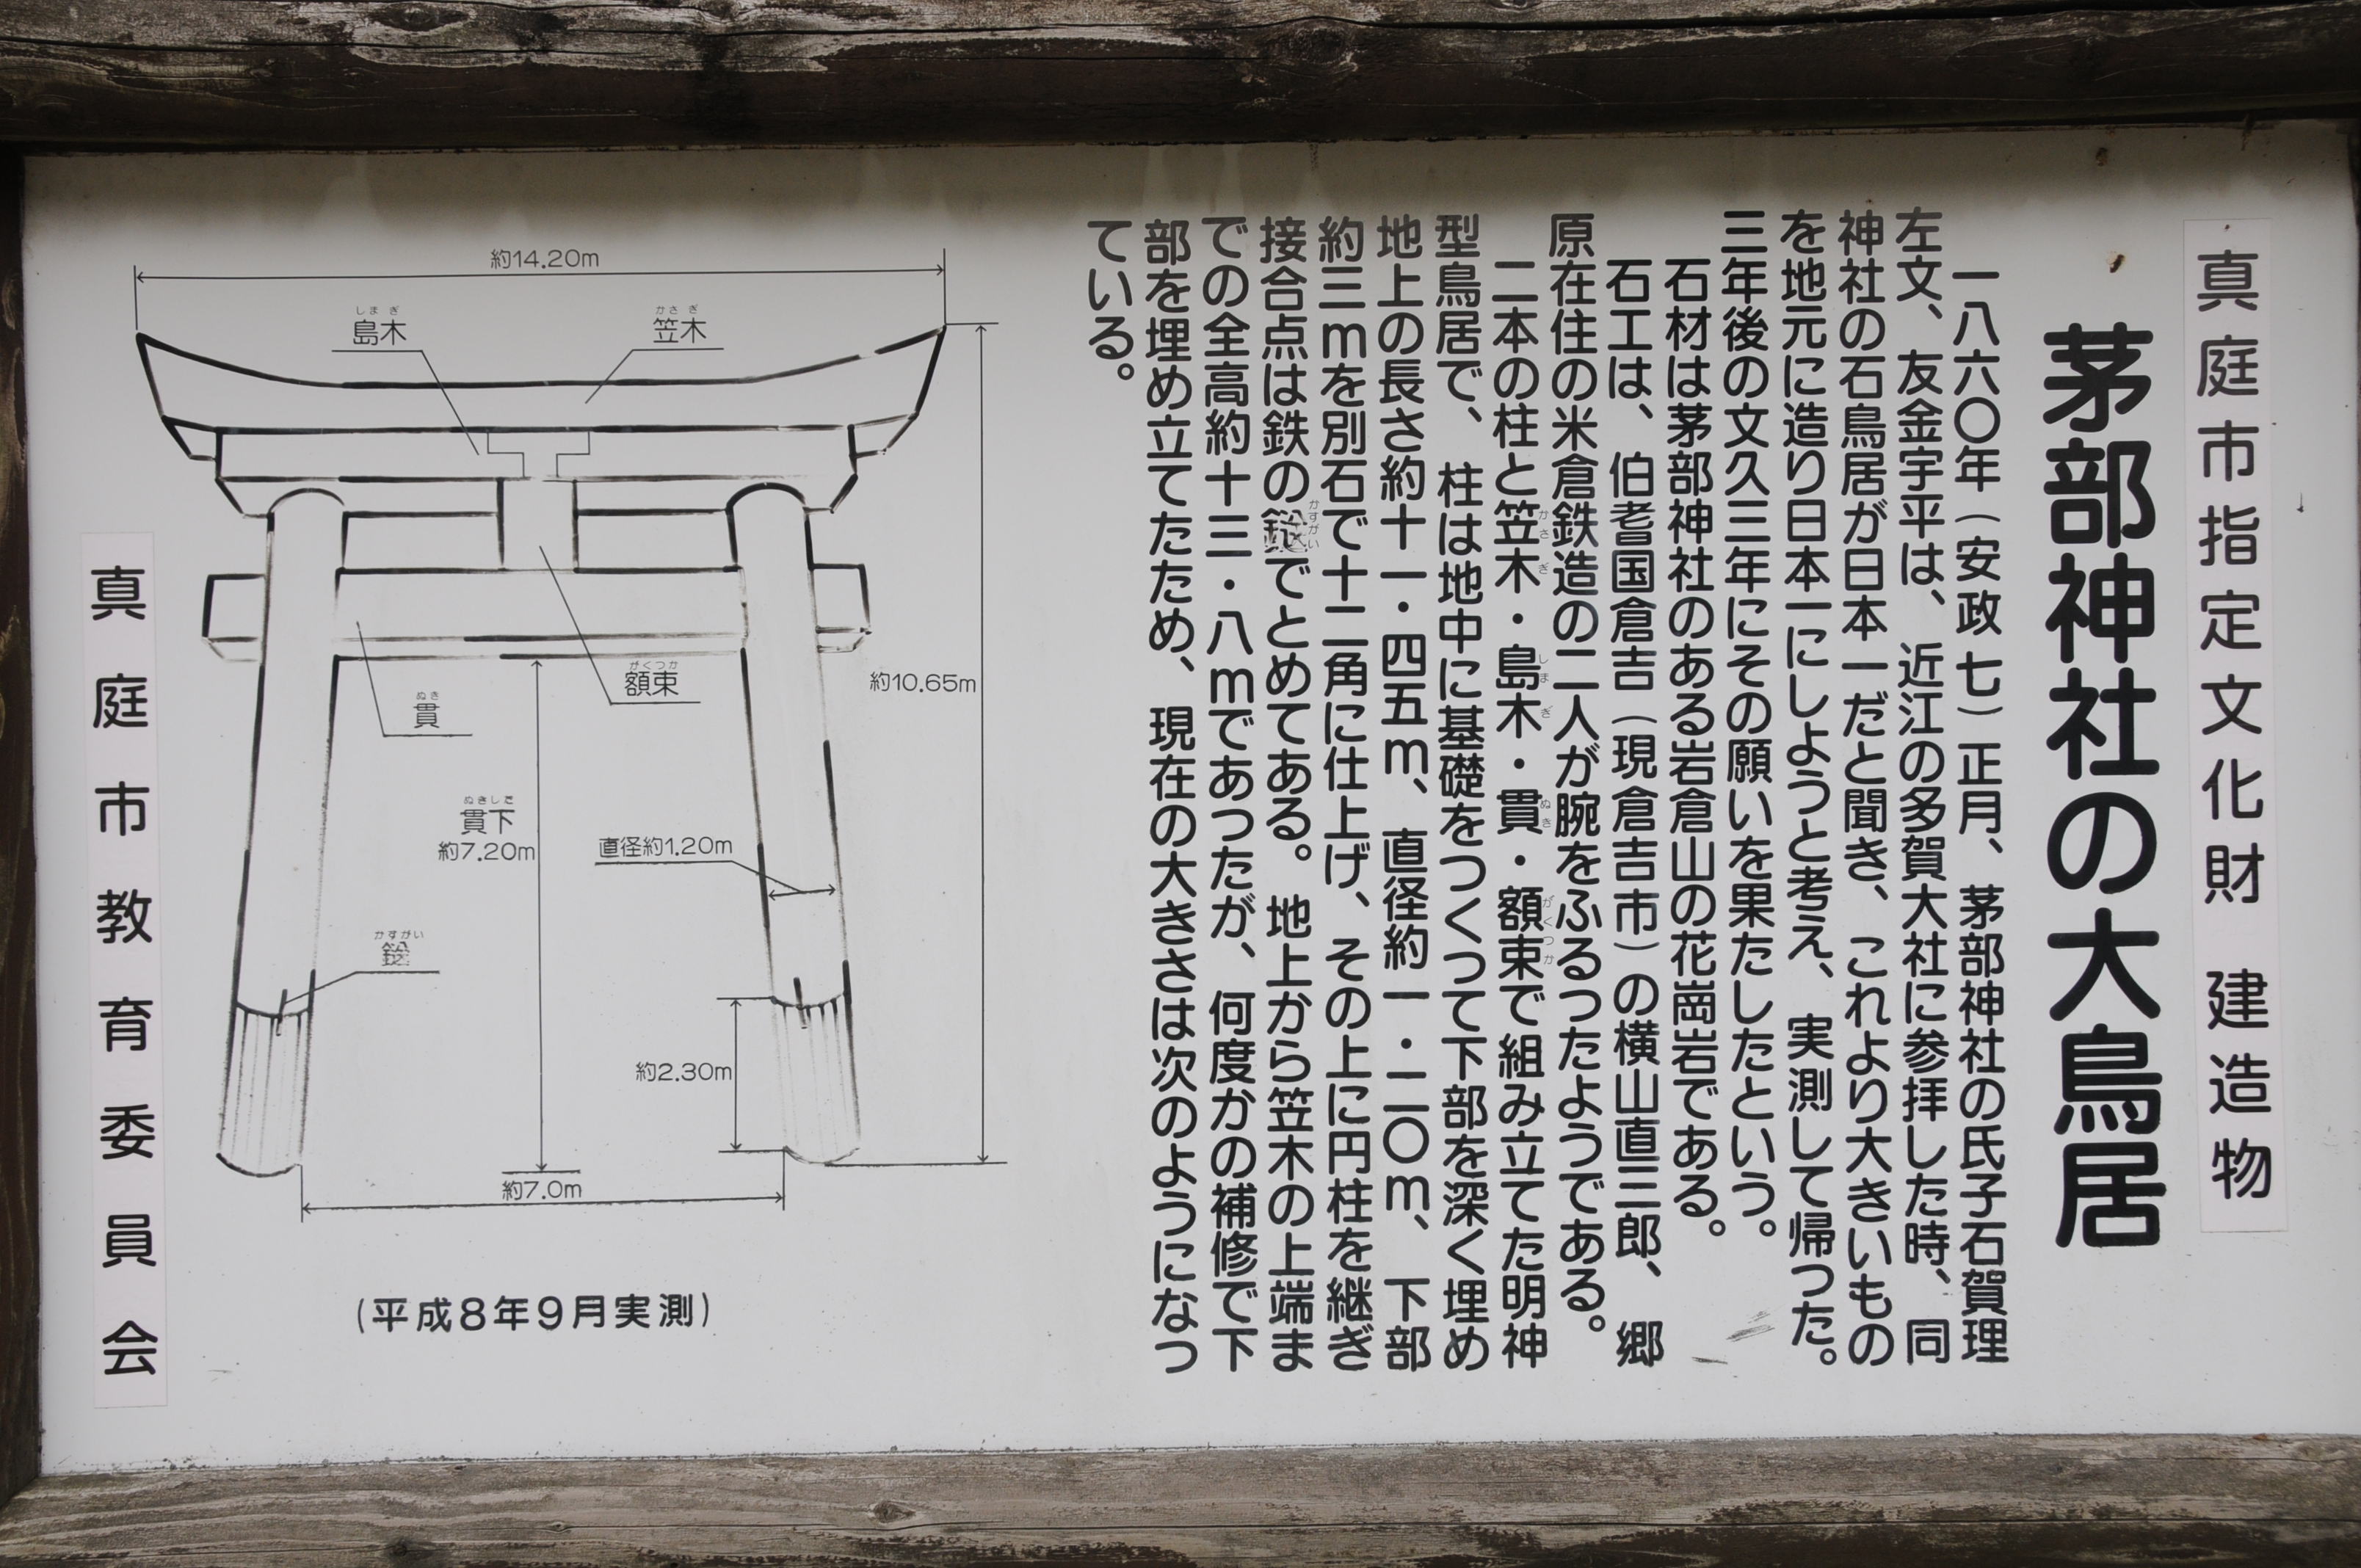 真庭市指定文化財 建造物
茅部神社の大鳥居
一八六〇年(安政七)正月、茅部神社の氏子石賀理
左文、友金宇平は、近江の多賀大社に参拝した時、同
神社の石鳥居が日本一だと聞き、これより大きいもの
を地元に造り日本一にしようと考え、実測して帰った。
三年後の文久三年にその願いを果たしたという。
石材は茅部神社のある岩倉山の花崗岩である。
石工は、伯耆国倉吉(現倉吉市)の横山直三郎、郷
原在住の米倉鉄造の二人が腕をふるったようである。
二本の柱と笠木・島木・貫・額束で組み立てた明神
かさぎ しまぎ ぬき がくつか
型鳥居で、柱は地中に基礎をつくって下部を深く埋め
地上の長さ約十一・四五m、直径約一・二〇m、下部
約三mを別石で十二角に仕上げ、その上に円柱を継ぎ
接合点は鉄の鎹でとめてある。地上から笠木の上端ま
かすがい
での全高約十三・八mであったが、何度かの補修で下
部を埋め立てたため、現在の大きさは次のようになっ
ている。
約14.20m
しまぎ
島木
かさぎ
笠木
約10.65m
がくつか
額束
ぬき
貫
ぬきした
貫下
約7.20m
直径約1.20m
かすがい
鎹
約2.30m
約7.0m
(平成8年9月実測)
真庭市教育委員会